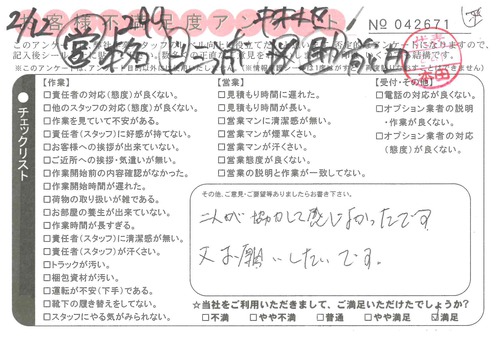 お客様不満足度アンケート
No 042671
2/12
【作業】
□責任者の対応(態度)が良くない。
□他のスタッフの対応(態度)が良くない。
□作業を見ていて不安がある。
□責任者(スタッフ)に好感が持てない。
□お客様への挨拶が出来ていない。
□ご近所への挨拶・気遣いが無い。
□作業開始前の内容確認がなかった。
□作業開始時間が遅れた。
□荷物の取り扱いが雑である。
□お部屋の養生が出来ていない。
□作業時間が長すぎる。
□責任者(スタッフ)に清潔感が無い。
□責任者(スタッフ)が汗くさい。
□トラックが汚い。
□梱包資材が汚い。
□運転が不安(下手)である。
□靴下の履き替えをしてない。
□スタッフにやる気がみられない。
【営業】
□見積もり時間に遅れた。
□見積もり時間が長い。
□営業マンに清潔感が無い。
□営業マンが煙草くさい。
□営業マンが汗くさい。
□営業態度が良くない。
□営業の説明と作業が一致してない。
【受付・その他】
□電話の対応が良くない。
□オプション業者の説明
・作業が良くない。
□オプション業者の対応
(態度)が良くない。
●チェックリスト
その他、ご意見・ご要望等ありましたらお書き下さい。
二人が協力して感じよかったです
又お願いしたいです。
☆当社をご利用いただきまして、ご満足いただけたでしょうか?
□不満 □やや不満 □普通 □やや満足 ☑満足